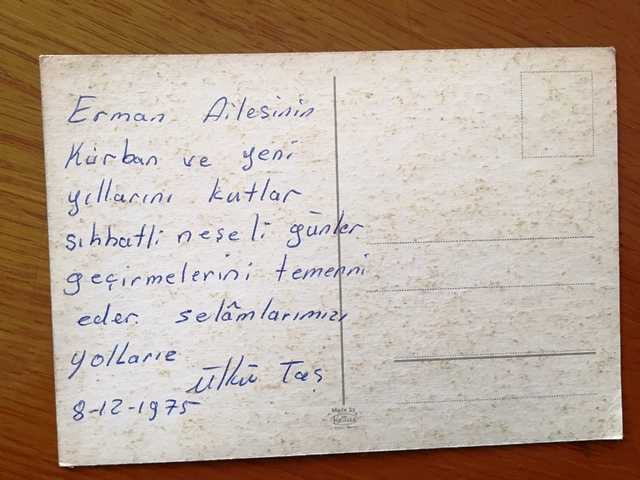 Erman Ailesinin
Kurban ve yeni
yıllarını kutlar
sıhhatli neşeli günler
geçirmelerini temenni
eder. selâmlarımızı
yollarıe
Ülkü Taş
8-12-1975
Made by